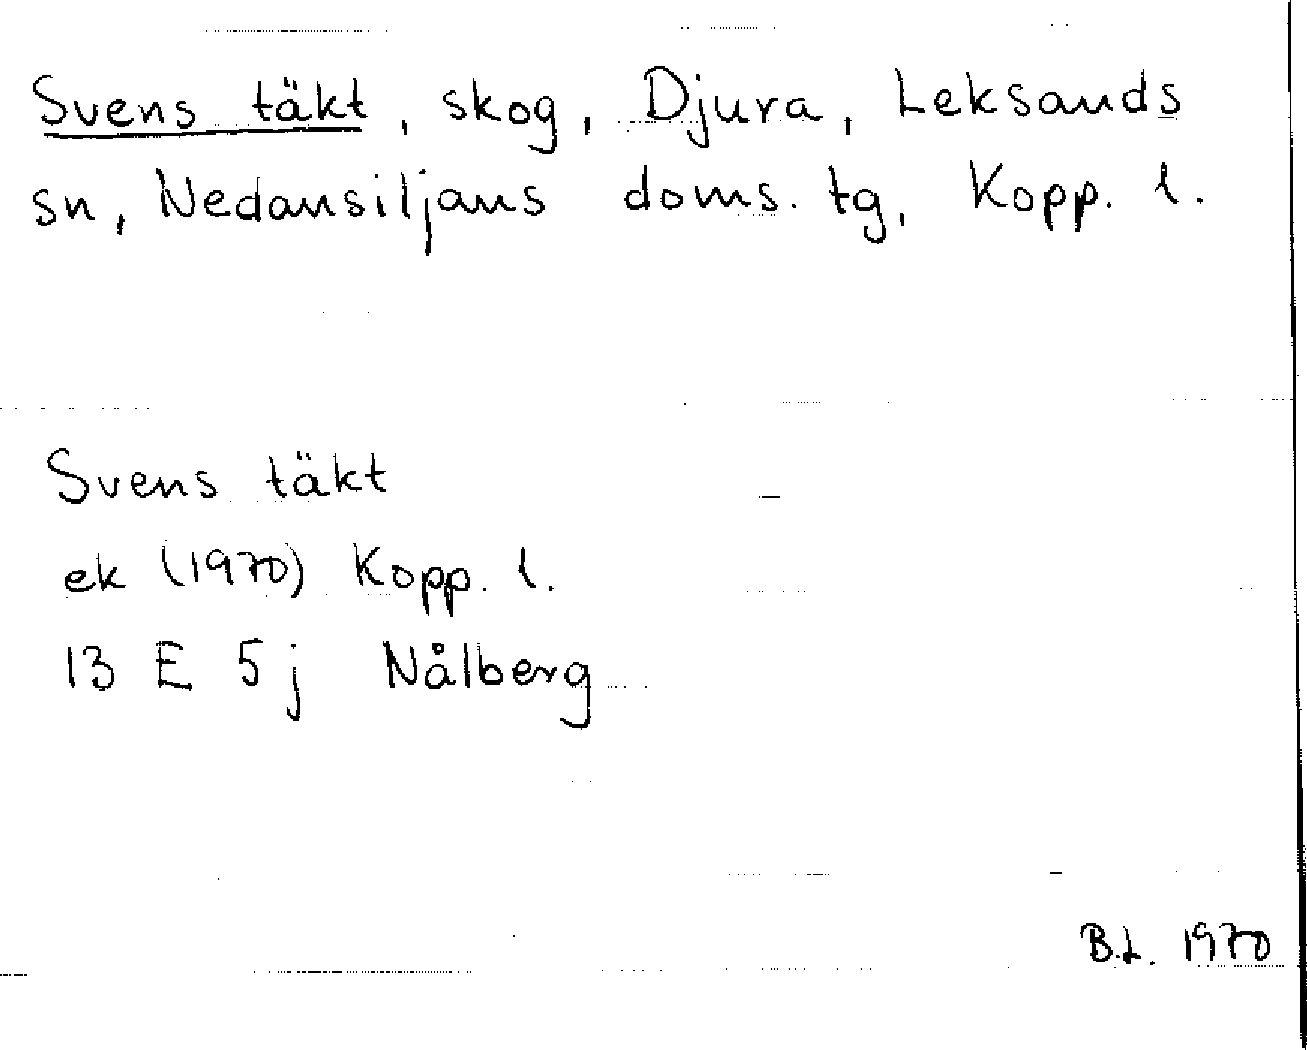 Svens täkt, skog, Djura, Leksands
sn, Nedansiljans doms. tg, Kopp. l.
Svens täkt
ek (1970) Kopp. l.
13 E 5 j Nålberg
B.L. 1970